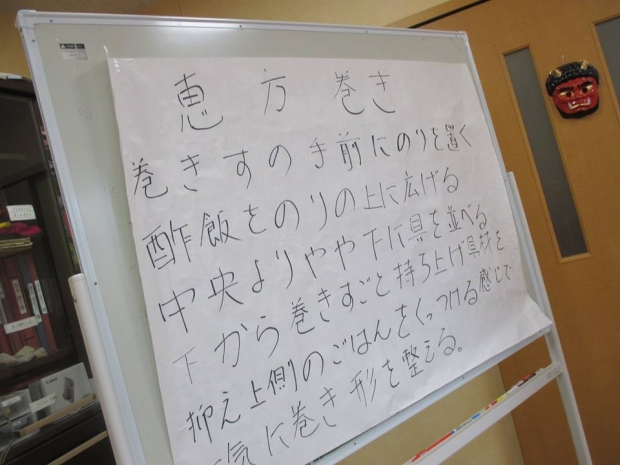 恵方巻き
巻きすの手前にのりを置く
酢飯をのりの上に広げる
中央よりやや下に具を並べる
下から巻きすごと持ち上げ具材を
抑え上側のごはんをくっつける感じで
気に巻き形を整える。